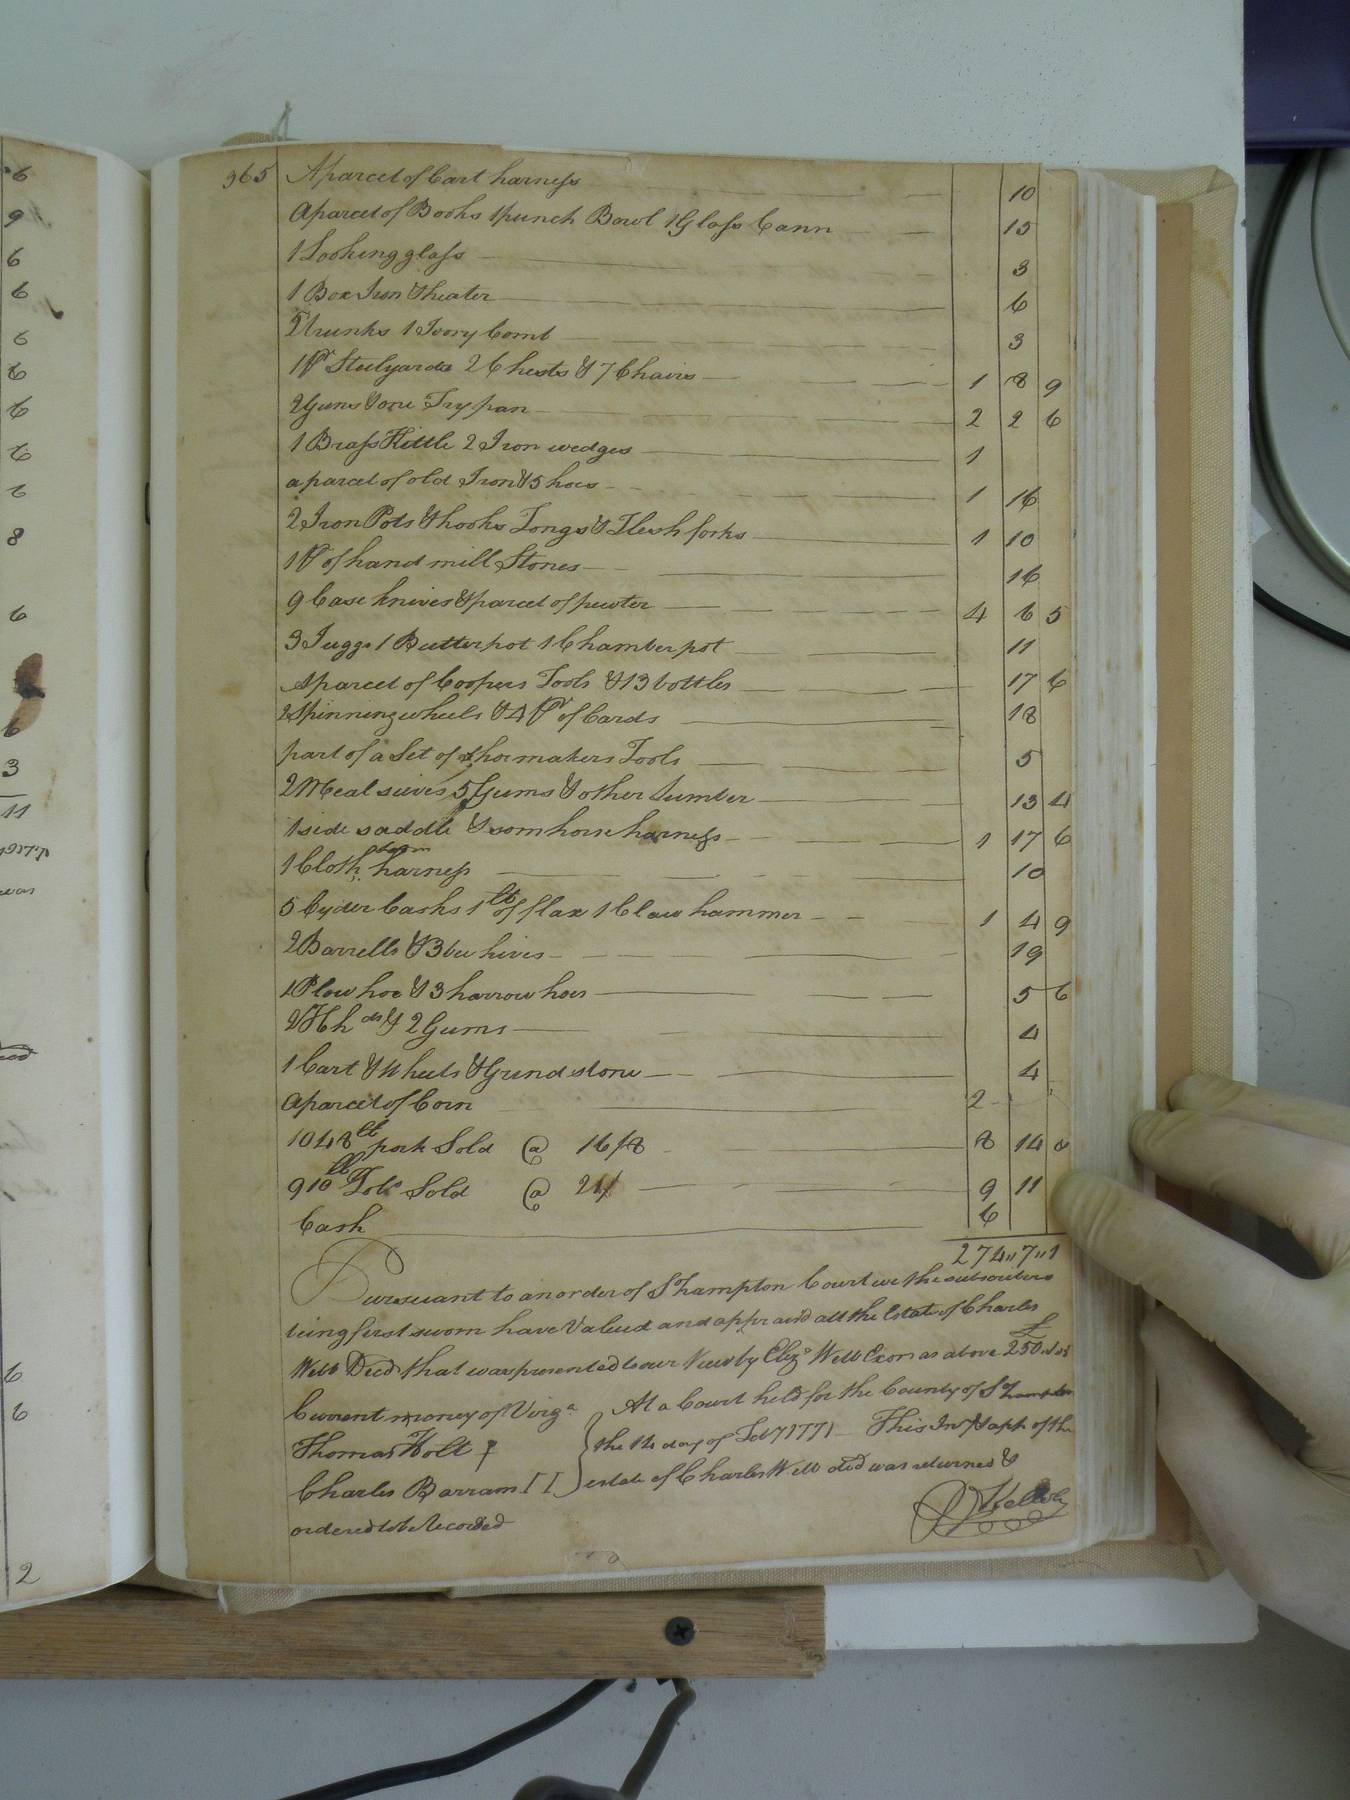 6
9
6
6
6
6
6
6
6
8
6
6
3
11
was
6
6
2
365 A parcel of Cart harness 10
A parcel of Books 1 punch Bowl 1 Glass Cann 15
1 Looking glass 3
1 Box Iron & heater 6
2 Trunks 1 Ivory Comb 3
1 Pr Steelyards 2 Chests & 7 Chairs 1 8 9
2 Guns & one Frypan 2 2 6
1 Brass Kittle 2 Iron wedges 1
a parcel of old Iron & 5 hoes 1 16
2 Iron Pots & hooks Tongs & Flesh forks 1 10
1 Pr of hand mill Stones 16
9 Case knives & parcel of pewter 4 6 5
3 Juggs 1 Butter pot 1 Chamber pot 11
A parcel of Coopers Tools & 13 bottles 17 6
2 Spinning wheels & 4 Pr of Cards 18
part of a Set of shoemakers Tools 5
2 Meal sieves 5 Gums & other Lumber 13 4
1 side saddle & som horse harness 1 17 6
1 Cloth loom harness 10
5 Cyder Casks 1 lb of flax 1 Claw hammer 1 4 9
2 Barrells & 3 bee hives 19
1 Plow hoe & 3 harrow hoes 5 6
2 Hhds & 2 Gums 4
1 Cart & Wheels & Grindstone 4
A parcel of Corn 2
1048 lb pork Sold @ 16/8 8 14 8
910 lb Tobo Sold @ 21/ 9 11
Cash 6
274 " 7 " 1
Pursuant to an order of So hampton Court we the subscribers
being first sworn have Valued and appraisd all the Estate of Charles
Webb Decd that was presented to our View by Eliza Webb Exor as above £ 250
Current money of Virga At a Court held for the County of
Thomas Holt the 14 day of Feby 1771 This Inv & aph of the
Charles Barram estate of Charles Webb decd was returned &
ordered to be Recorded